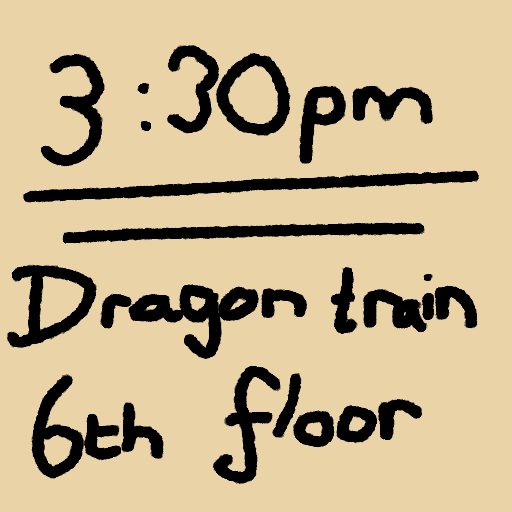 3:30pm
Dragon train
6th floor